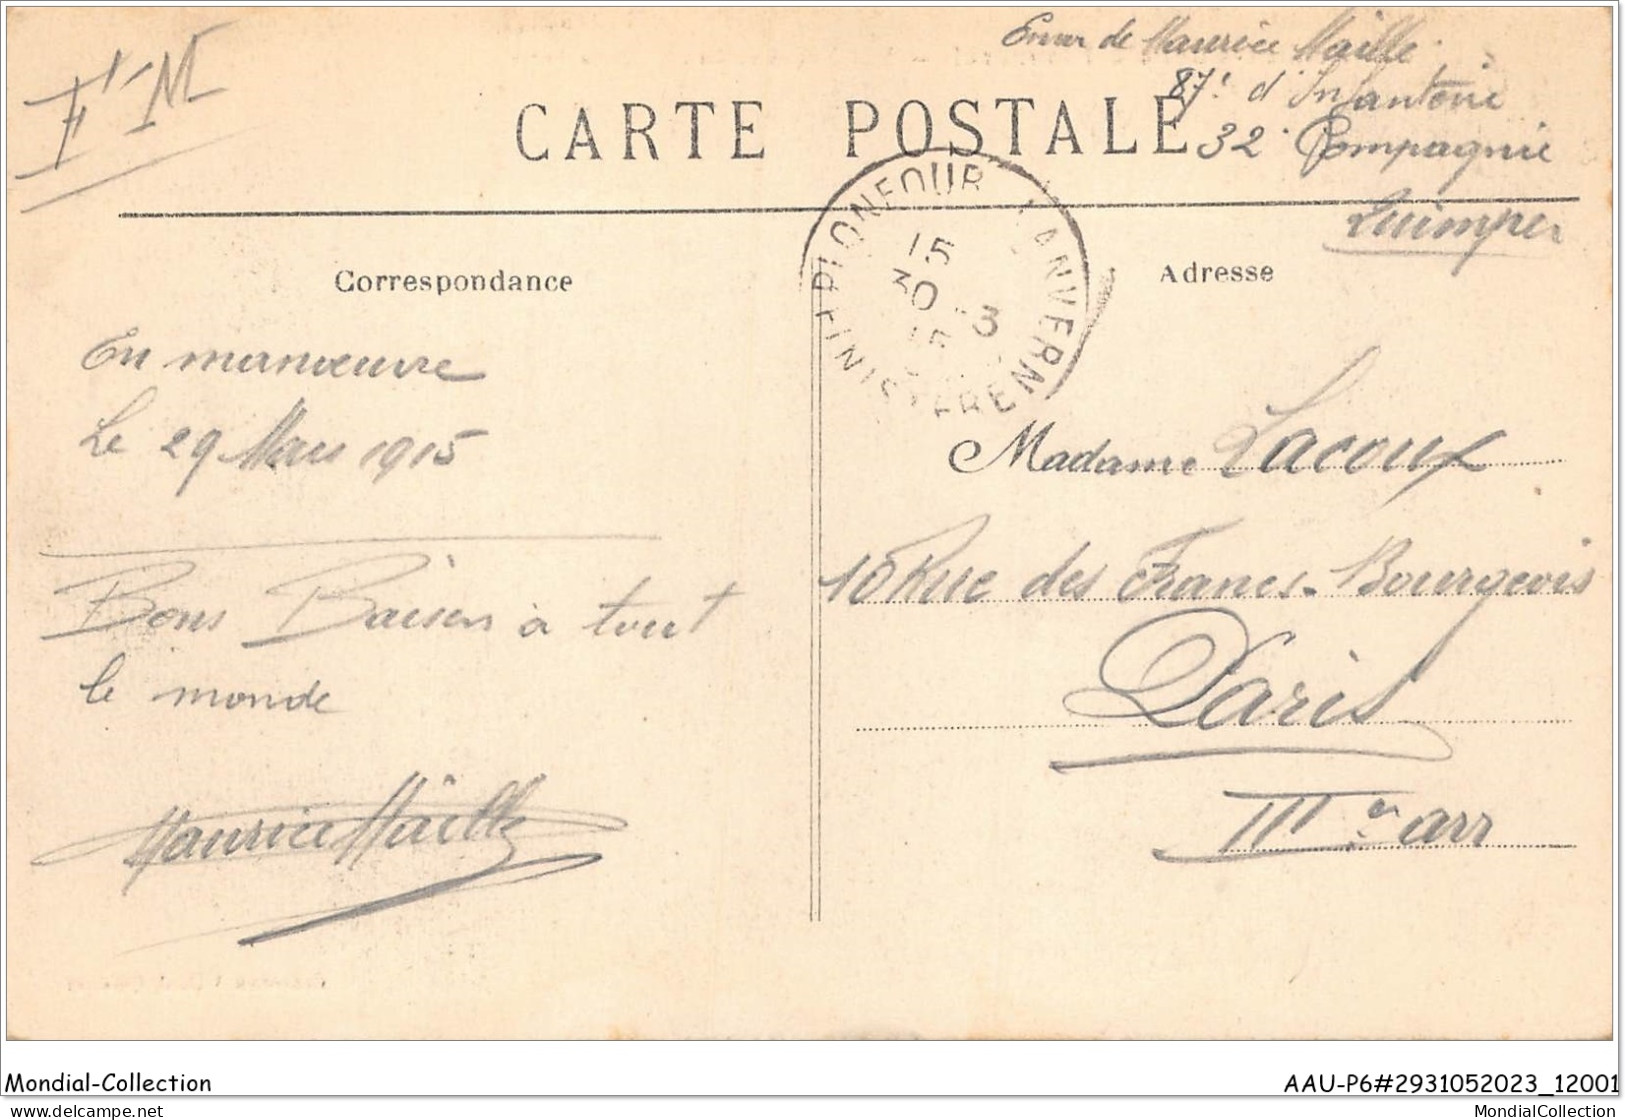 F. M.
Envoi de Maurice Maille
87e d'Infanterie
CARTE POSTALE
32e Compagnie
Quimper
PLONÉOUR-LANVERN
FINISTERE
15
30 -3
15
Correspondance
Adresse
En manœuvre
Le 29 Mars 1915
Madame Lacoux
Bons Baisers à tout
le monde
10 Rue des Francs-Bourgeois
Paris
IIIe arr
Maurice Maille
Mondial-Collection
AAU-P6#2931052023_12001
www.delcampe.net
MondialCollection